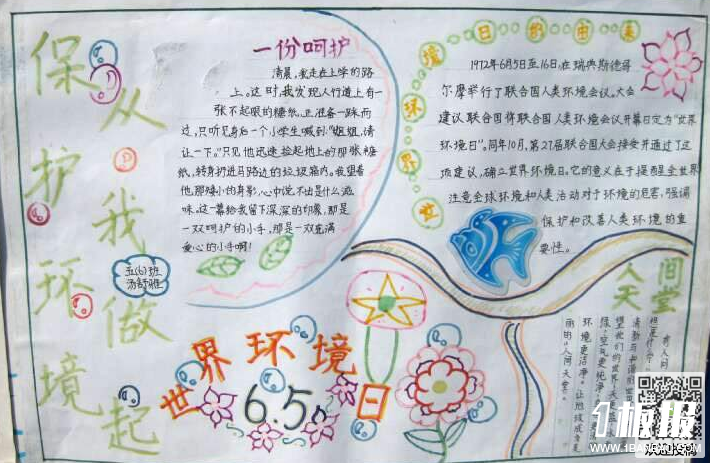 保护环境
从我做起
五(6)班
一份呵护
清晨,我走在上学的路
上。这时,我发现人行道上有一
张不起眼的糖纸。正准备一踩而
过,只听见身后一个小学生喊到“姐姐,请
让一下。”只见他迅速捡起地上的那张糖
纸,转身扔进马路边的垃圾箱内。我望着
他,那矮小的身影,心中说不出是什么滋
味。这一幕给我留下深深的印象,那是
一双呵护的小手,那是一双充满
爱心的小手啊!
世界环境日的由来
1972年6月5日至16日,在瑞典斯德哥
尔摩举行了联合国人类环境会议。大会
建议联合国将联合国人类环境会议开幕日定为“世界
环境日”。同年10月,第27届联合国大会接受并通过了这
项建议,确立世界环境日。它的意义在于提醒全世界
注意全球环境和人类活动对于环境的危害,强调
保护和改善人类环境的重
要性。
人间
天堂
有人问
望我们的世界:天
绿:空气更纯净
环境更洁净。让地球成为
丽的“人间天堂”。
世界环境日
6.5
板报
WWW.1BANBAO.COM
欢迎投稿